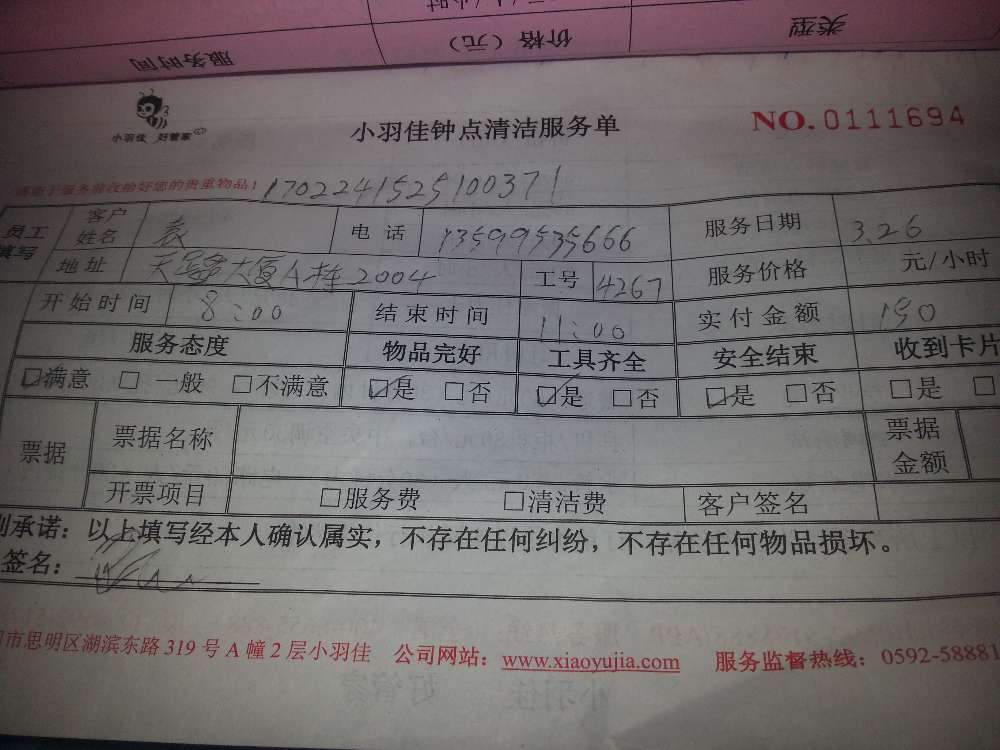 类型 价格（元） 服务时间
小羽佳 好管家
小羽佳钟点清洁服务单
NO. 0111694
服务验收拾好您的贵重物品！
1702241525100371
员工填写 客户姓名 袁 电话 13599535666 服务日期 3.26
地址 天 大厦A栋2004 工号 4267 服务价格 元/小时
开始时间 8:00 结束时间 11:00 实付金额 150
服务态度 物品完好 工具齐全 安全结束 收到卡片
☑满意 □一般 □不满意 ☑是 □否 ☑是 □否 ☑是 □否 □是 □
票据 票据名称 票据金额
开票项目 □服务费 □清洁费 客户签名
承诺：以上填写经本人确认属实，不存在任何纠纷，不存在任何物品损坏。
签名：
市思明区湖滨东路 319 号 A 幢 2 层小羽佳 公司网站：www.xiaoyujia.com 服务监督热线：0592-58881
小羽佳 好管家